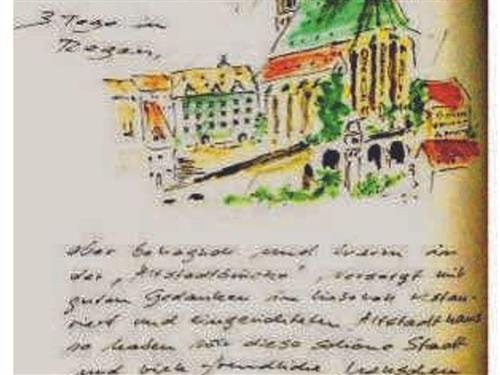 3 Tage in
Regen,
aber und warm in
der „Altstadtbrücke“, versorgt mit
guten Gedanken im restau-
riert und eingerichteten Altstadthaus
so haben wir diese schöne Stadt
und viele freundliche Menschen